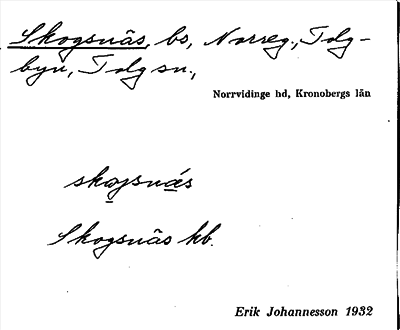 Skogsnäs, bs, Norreg., Tolg-
byn, Tolg sn.,
Norrvidinge hd, Kronobergs län
skọgsnás
Skogsnäs kb.
Erik Johannesson 1932